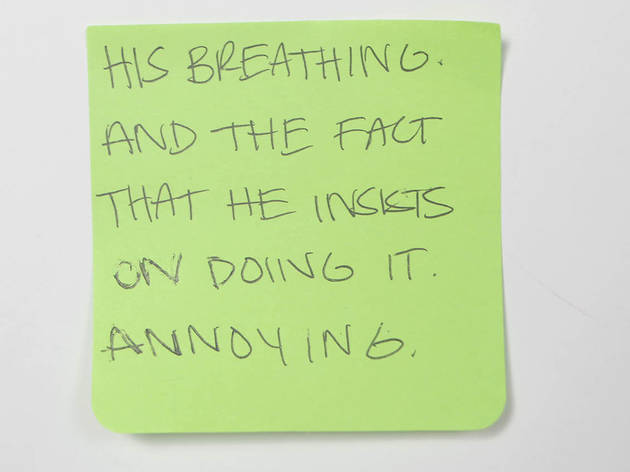 HIS BREATHING.
AND THE FACT
THAT HE INSISTS
ON DOING IT.
ANNOYING.